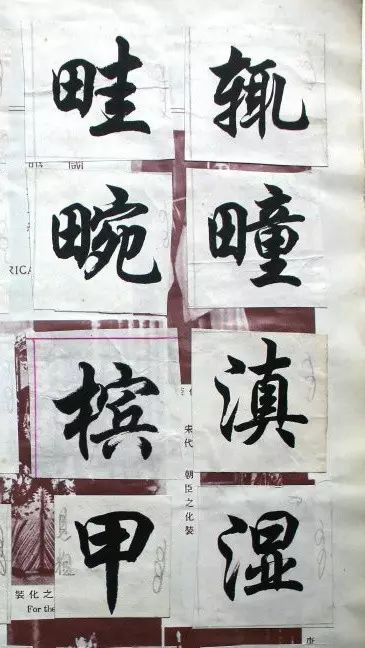 辄疃滇湿
畦畹槟甲
宋代 朝臣之化裝
RICA
裝化之
For the